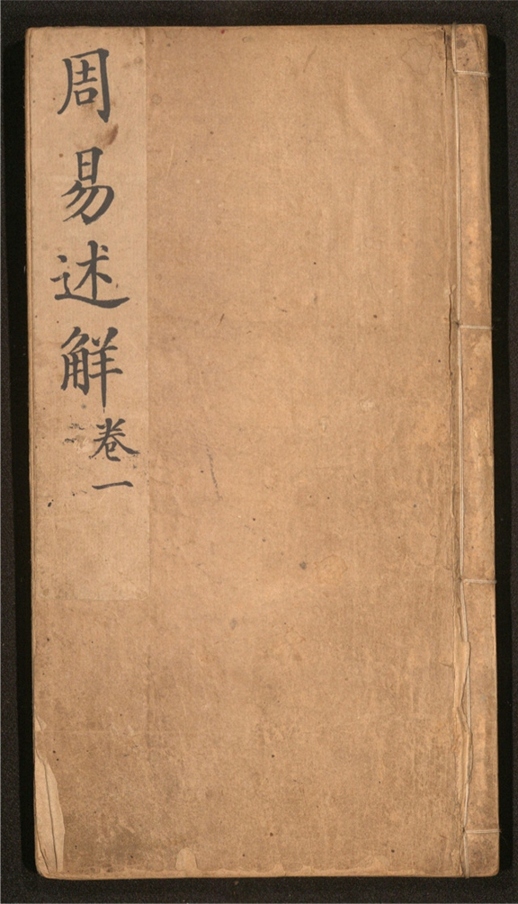 周易述觧
卷一